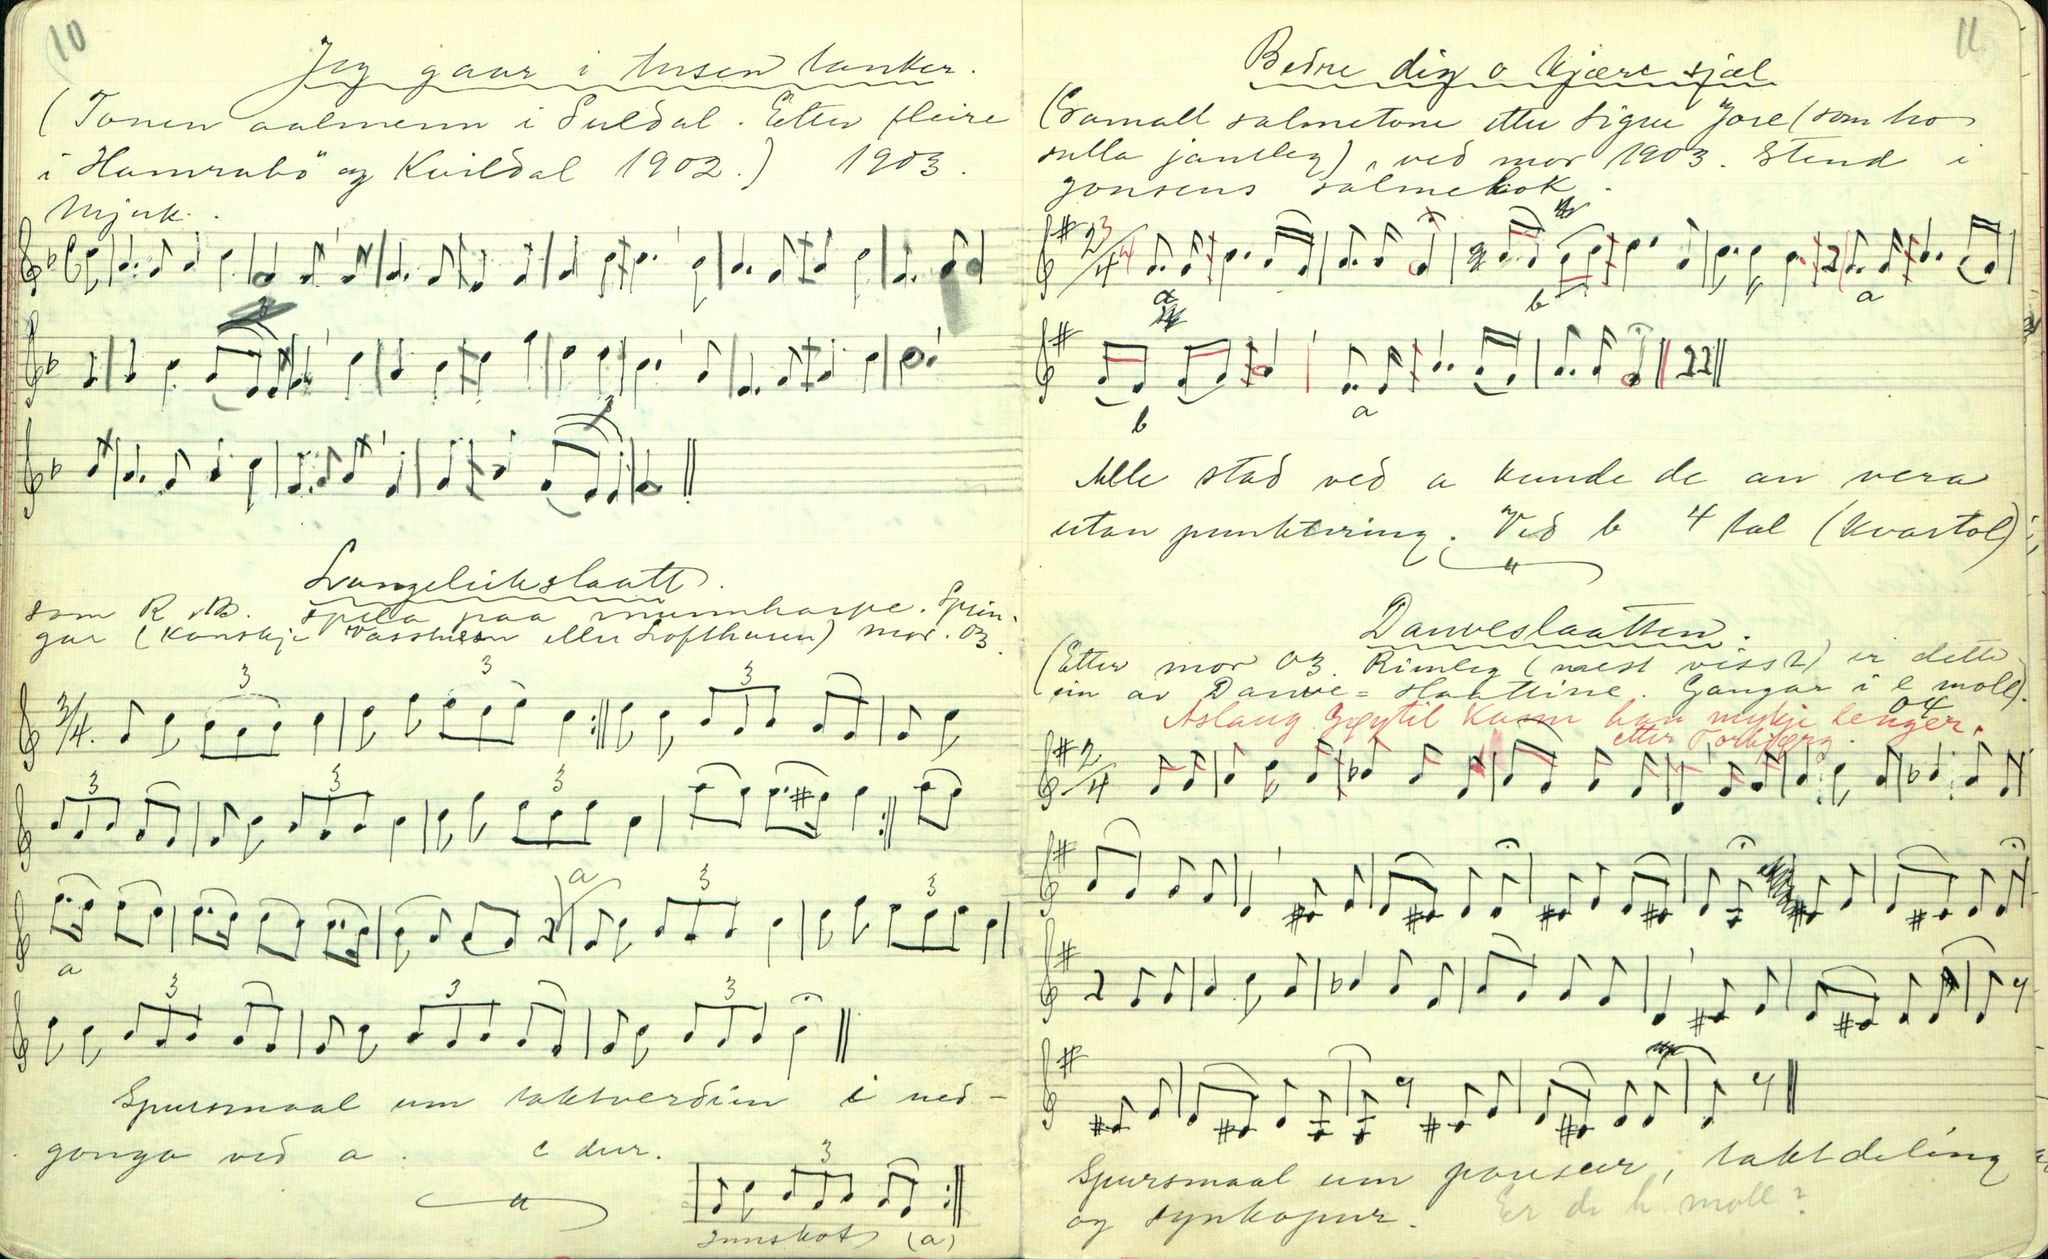 10
Jeg gaar i tusen tanker.
(Tonen aalmenn i Suldal. Etter fleire
i Hamrabö og Kvildal 1902.) 1903.
Mjuk.
Langeleikslaatt.
som R. spela paa munnharpe. Sprin-
gar (kanskje eller Lofthusen) mor. 03.
3/4.
3
3
3
3
3
3
a
3
3
a
3
3
3
Spursmaal um taktverdien i ned-
gonga ved a. c dur.
3
Innskot (a)
11
Bedre dig o kjære sjæl
(Gamall salmetone etter Sigrui Jore (som ho
sulla jamleg), ved mor 1903. Stend i
Jonsens salmebok.
2/4 3/4
a
b
a
b
a
Alle stad ved a kunde de an vera
utan punktering. Ved b 4 tal (kvartol)
Dauveslaatten.
(Etter mor 03. Rimleg (mest visst) er dette
ein av Dauve-slaattine. Gangar i e moll).
04
Aslaug kann han mykje lenger.
etter Torbjørg.
2/4
Spursmaal um pauseer, taktdeling
og synkopur.
Er de h moll?